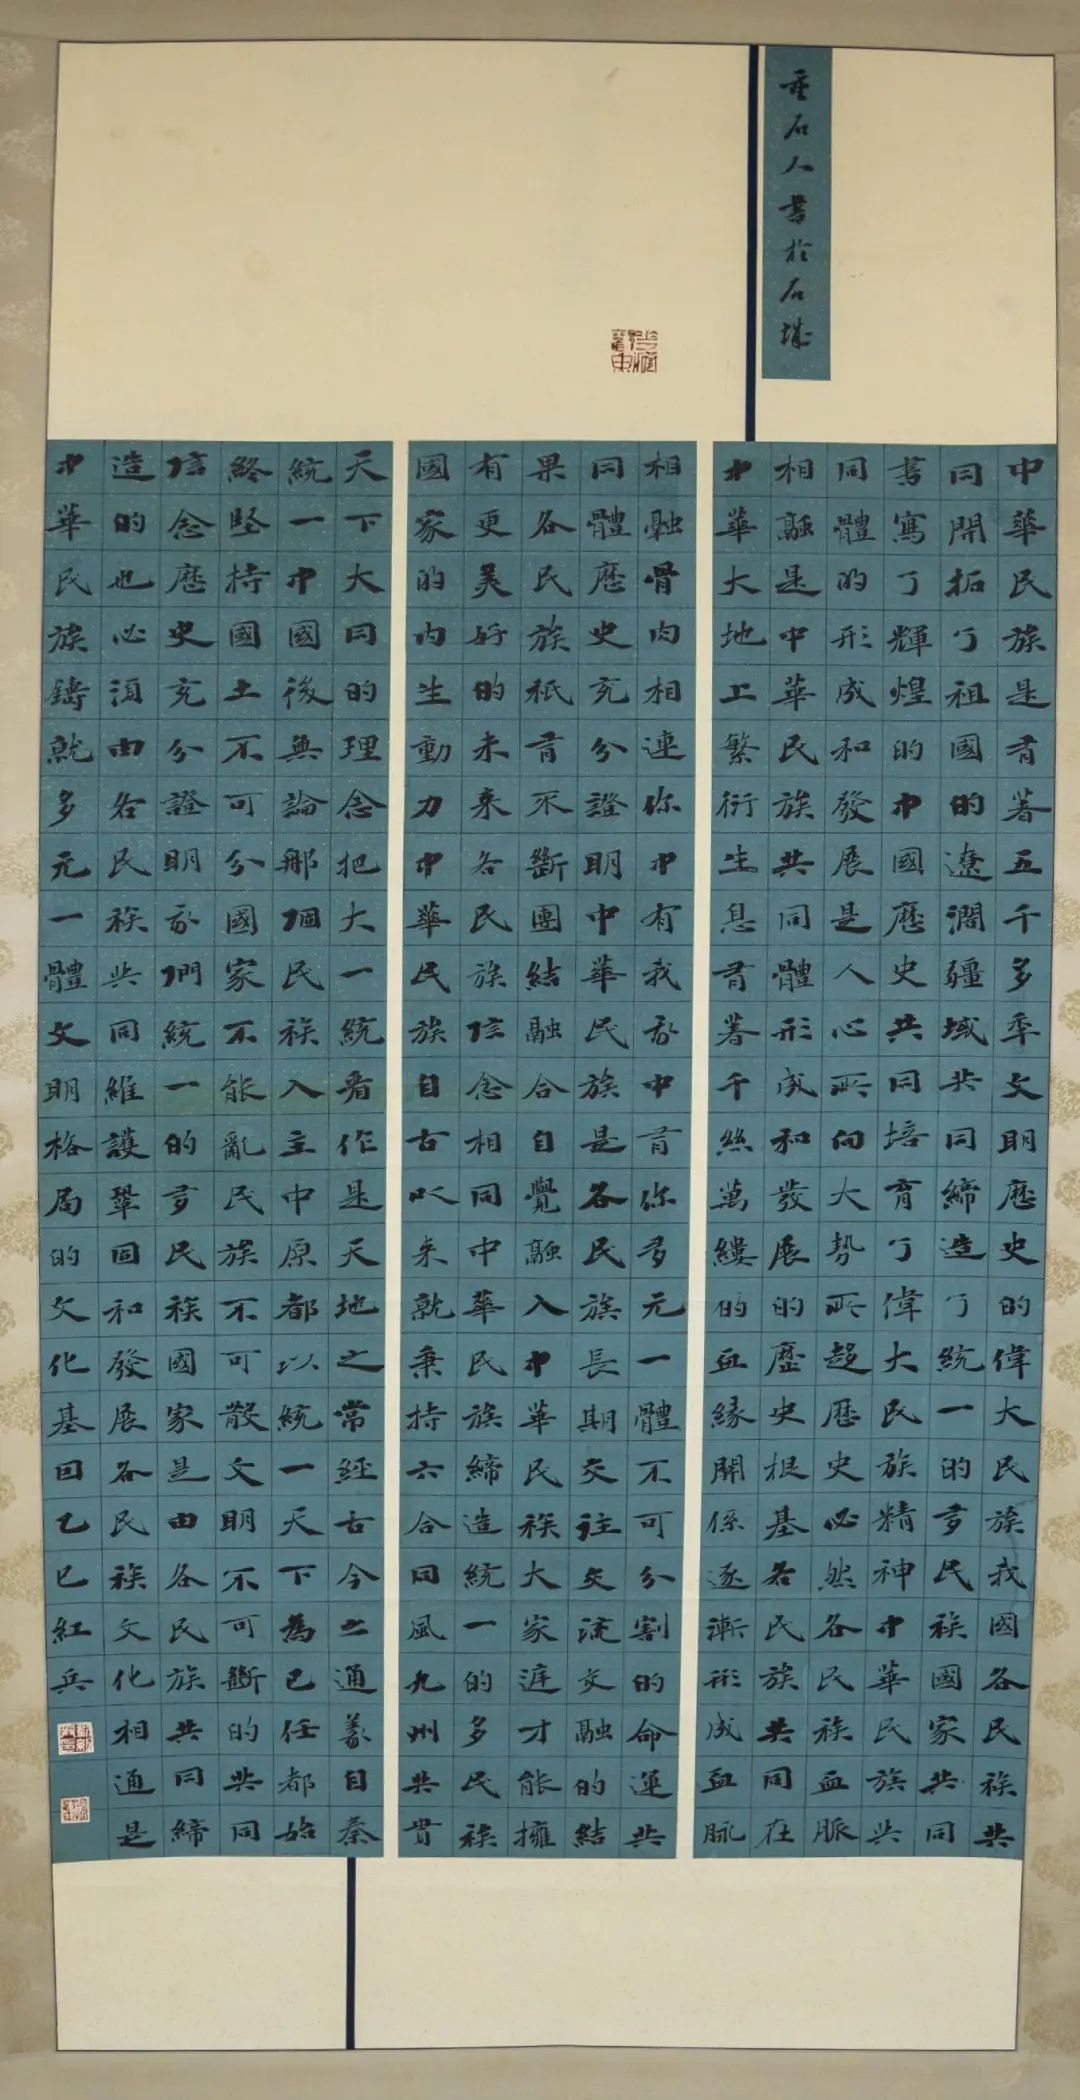 石人書於石城
中華民族是有著五千多年文明歷史的偉大民族我國各民族共
同開拓了祖國的遼濶疆域共同締造了統一的多民族國家共同
書寫了輝煌的中國歷史共同培育了偉大民族精神中華民族共
同體的形成和發展是人心所向大勢所趨歷史必然各民族血脈
相融是中華民族共同體形成和發展的歷史根基各民族共同在
中華大地上繁衍生息有著千絲萬縷的血緣關係逐漸形成血脈
相融骨肉相連你中有我我中有你多元一體不可分割的命運共
同體歷史充分證明中華民族是各民族長期交往交流交融的結
果各民族祇有不斷團結融合自覺融入中華民族大家庭才能擁
有更美好的未來各民族信念相同中華民族締造統一的多民族
國家的内生動力中華民族自古以來就秉持六合同風九州共貫
天下大同的理念把大一統看作是天地之常經古今之通義自秦
統一中國後無論那個民族入主中原都以統一天下為己任都始
終堅持國土不可分國家不能亂民族不可散文明不可斷的共同
信念歷史充分證明我們統一的多民族國家是由各民族共同締
造的也必須由各民族共同維護鞏固和發展各民族文化相通是
中華民族鑄就多元一體文明格局的文化基因乙巳紅兵